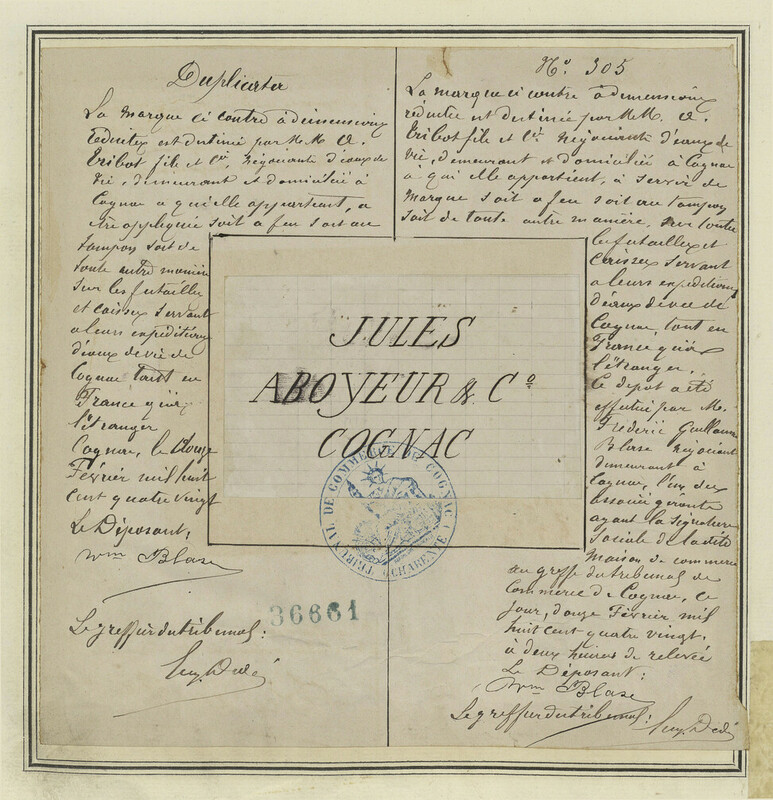 Duplicata
La marque ci contre à dimensions
réduites est destinée par M.M. A.
Tribot fils et Cie, négociants d'eaux de
vie, demeurant et domiciliés à
Cognac a qu'elle appartient, a
être appliquée soit a feu soit au
tampon soit de
toute autre manière
sur les futailles
et caisses servant
a leurs expéditions
d'eaux de vie de
Cognac tant en
France qu'à
l'étranger
Cognac, le douze
Février mil huit
cent quatre vingt
Le Déposant,
Wm Blase
Le greffier du tribunal:
No. 305
La marque ci contre à dimensions
réduites est destinée par M.M. A.
Tribot fils et Cie négociants d'eaux de
vie, demeurant et domiciliés à Cognac
a qui elle appartient, à servir de
Marque soit a feu soit au tampon
soit de toute autre manière, sur toutes
les futailles et
Caisses servant
a leurs expéditions
d'eaux de vie de
Cognac, tant en
France qu'à
l'étranger.
Ce dépot a été
effectué par M.
Frederic Guillaume
Blase négociant
demeurant à
Cognac, l'un des
associés gérants
ayant la signature
sociale de la dite
Maison de commerce
au greffe du tribunal de
Commerce de Cognac, ce
jour, douze Février mil
huit cent quatre vingt,
à deux heures de relevée
Le Déposant:
Wm Blase
Le greffier du tribunal:
JULES
ABOYEUR & Co
COGNAC
TRIBUNAL DE COMMERCE DE COGNAC
CHARENTE
36661